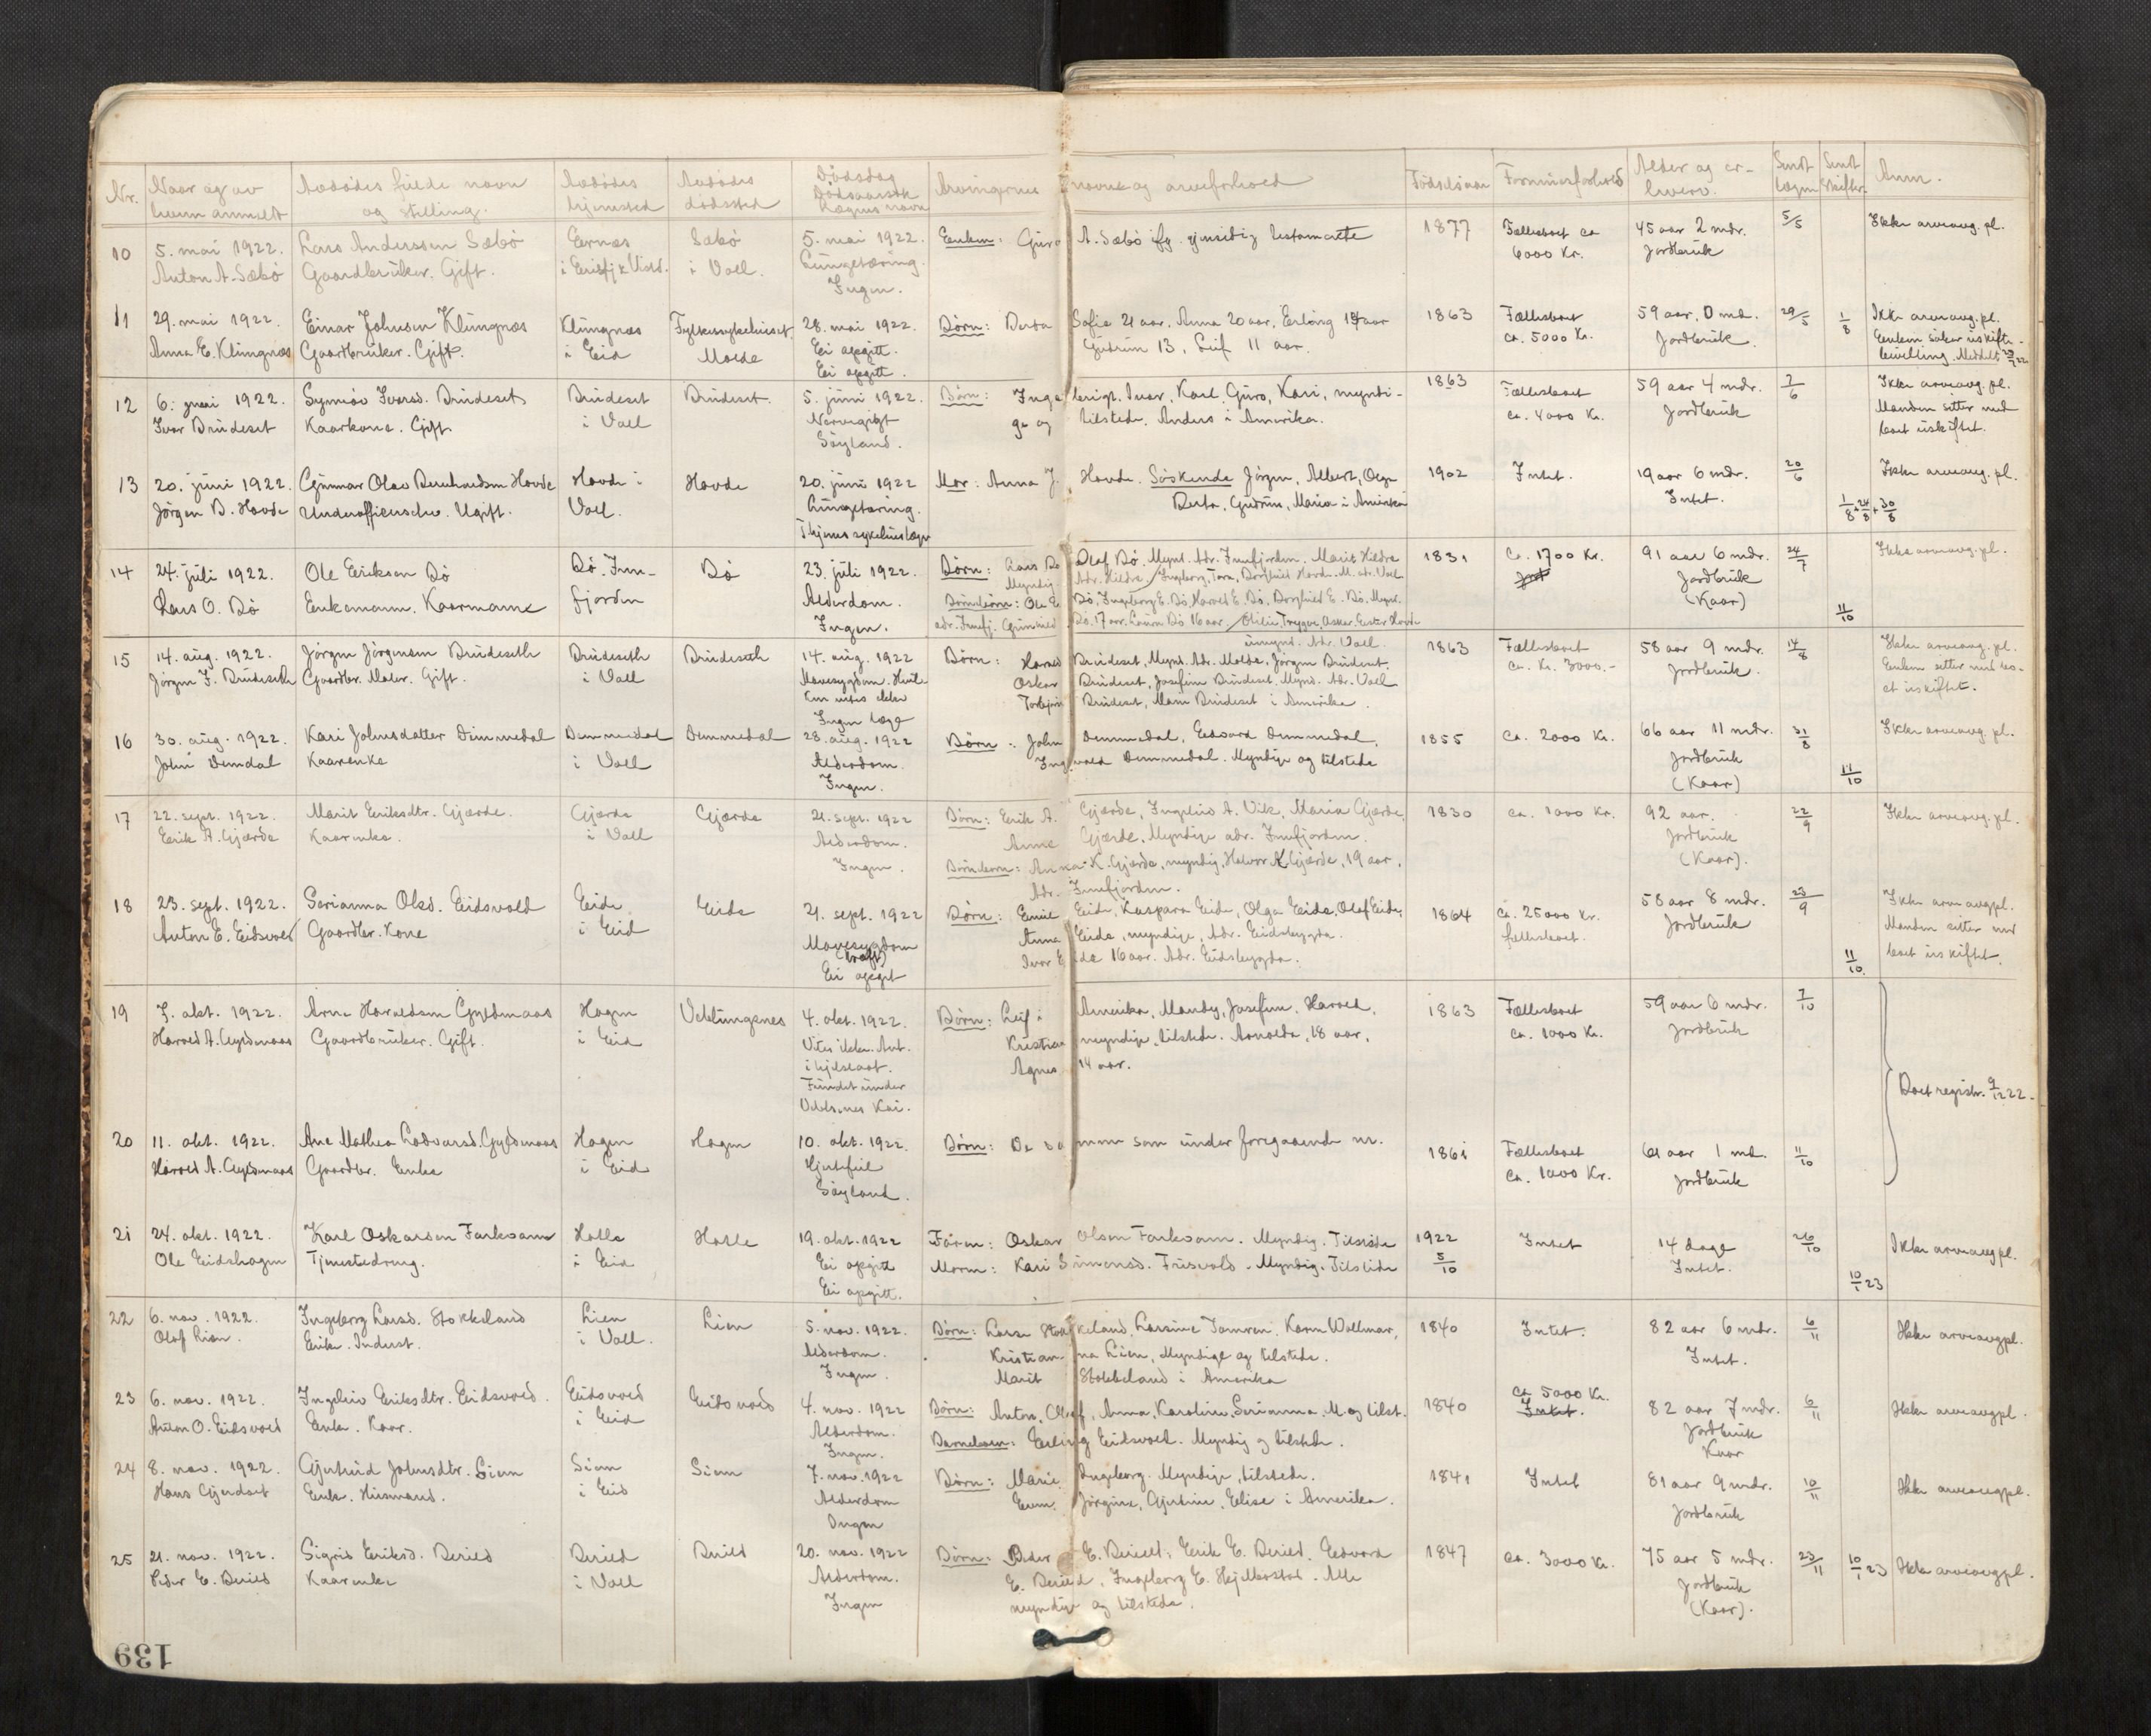 Nr.
Naar og av hvem anmeldt
Avdødes fulde navn og stilling.
Avdødes hjemsted
Avdødes dødssted
Dødsdag Dødsaarsak Lægens navn
Arvingernes navne og arveforhold
Fødselsaar
Formuesforhold
Alder og erhverv.
Sendt lægen
Sendt skifter.
Anm.
10
5. mai 1922.
Anton A. Sæbö
Lars Anderssen Sæbö
Gaardbruker. Gift.
Sæbö
i Voll.
5. mai 1922.
Lungetæring.
Ingen.
Enken: Guro A. Sæbö ifg. gjensidig testamente
1877
Fællesboet ca
6000 Kr.
45 aar 2 mdr.
Jordbruk
5/5
Ikke arveavg. pl.
11
29. mai 1922.
Anna E. Klungnes
Einar Johnsen Klungnes
Gaardbruker. Gift.
Klungnes
i Eid
Fylkessykehuset
Molde
28. mai 1922.
Ei opgitt.
Ei opgitt.
Børn: Berta Sofie 21 aar. Anna 20 aar, Erling aar
Gudrun 13, Leif 11 aar.
1863
Fællesboet
ca. 5000 Kr.
59 aar, 0 md.
Jordbruk.
29/5
1/8
Ikke arveavg. pl.
Enken søker uskifte-
bevilling. Meddelt
12
6. juni 1922.
Ivar Brudeset
Synnøv Ivarsd. Brudeset
Kaarkone. Gift.
Brudeset
i Voll
Brudeset.
5. juni 1922.
Nervegigt
Søyland.
Børn: Ivar, Karl, Guro, Kari, myndi-
ge og tilstede. Anders i Amerika.
1863
Fællesboet
ca. 4000 Kr.
59 aar 4 mdr.
Jordbruk
7/6
Ikke arveavg. pl.
Manden sitter med
boet uskiftet.
13
20. juni 1922.
Jörgen B. Hovde
Gunnar Olav Bernhardsen Hovde
Underofficerselev. Ugift.
Hovde i
Voll.
Hovde
20. juni 1922
Lungetæring.
Mor: Anna J. Hovde. Søskende Jörgen, Albert, Olga
Berta, Gudrun, Maria i Amerika
1902
Intet.
19 aar 6 mdr.
Intet.
20/6
1/8 + 24/8 + 30/8
Ikke arveavg. pl.
14
24. juli 1922.
Lars O. Bö
Ole Eriksen Bö
Enkemann. Kaarmann
Bö. Inn-
fjorden
Bö
23. juli 1922.
Alderdom.
Ingen.
Børn: Lars Bö Olaf Bö. Mynd. Adr. Innfjorden. Marit Hildre
Myndig. Adr. Hildre. Ingeborg, Borghild Hovde. M. adr. Voll
Børnebørn: Ole E. Bö, Ingeborg E. Bö, Harald E. Bö, Borghild E. Bö. Mynd.
adr. Innfj. Gunhild Bö. 17 aar. Bö 16 aar. Trygve, Asker, Ester Hovde
umynd. Adr. Voll.
1831
Ca. 1700 Kr.
91 aar 6 mdr.
Jordbruk
(Kaar)
24/7
11/10
Ikke arveavg. pl.
15
14. aug. 1922.
Jörgen J. Brudeseth
Jörgen Jörgensen Brudeseth
Gaardbr. Maler. Gift.
Brudeseth
i Voll
Brudeseth
14. aug. 1922
Mavesygdom. Hvil-
ken vites ikke
Ingen læge
Børn: Harald Brudeset, Mynd. Adr. Molde, Jörgen Brudeset,
Oskar Brudeset, Josefine Brudeset, Mynd. Adr. Voll
Torbjørn Brudeset, Brudeset i Amerika.
1863
Fællesboet
ca. Kr. 3000.-
58 aar 9 mdr.
Jordbruk.
14/8
Ikke arveavg. pl.
Enken sitter med bo-
et uskiftet.
16
30. aug. 1922.
John Demdal
Kari Johnsdatter Dimmedal
Kaarenke
Demmedal
i Voll
Demmedal
28. aug. 1922
Alderdom.
Ingen.
Børn: John Demmedal, Edvard Demmedal,
Ingvald Demmedal. Myndige og tilstede
1855
Ca. 2000 Kr.
66 aar 11 mdr.
Jordbruk
(Kaar)
31/8
11/10
Ikke arveavg. pl.
17
22. sept. 1922.
Erik A. Gjærde
Marit Eriksdtr. Gjærde.
Kaarenke.
Gjærde
i Voll
Gjærde
21. sept. 1922
Alderdom.
Ingen.
Børn: Erik A. Gjærde, Ingeleiv A. Vik, Maria Gjærde,
Anne Gjærde, Myndige adr. Innfjorden.
Børnebørn: Anna K. Gjærde, myndig, Halvor K. Gjærde, 19 aar,
Adr. Innfjorden.
1830
ca. 1000 Kr.
92 aar.
Jordbruk
(Kaar).
22/9
Ikke arveavg. pl.
18
23. sept. 1922.
Anton E. Eidsvold
Serianna Olsd. Eidsvold
Gaardbr. Kone
Eide
i Eid
Eide
21. sept. 1922
Mavesygdom
(kræft)
Ei opgit
Børn: Emil Eide, Kaspara Eide, Olga Eide, Olaf Eide,
Anna Eide, myndige, Adr. Eidsbygda.
Ivar Eide 16 aar. Adr. Eidsbygda.
1864
Ca. 2500 Kr.
fellesboet.
58 aar 8 mdr.
Jordbruk
23/9
11/10.
Ikke arveavgpl.
Manden sitter med
boet uskiftet.
19
7. okt. 1922.
Harald A. Gyldenaas
Arne Haraldsen Gyldenaas
Gaardbruker. Gift.
Hagen
i Eid
Veblungsnes
4. okt. 1922.
Vites ikke. Ant.
ihjelslaat.
Fundet under
Vebl.snes Kai.
Børn: Leif i Amerika, Mandy, Josefine, Harald,
Kristian myndige, tilstede. Arnolda, 18 aar,
Agnes 14 aar.
1863
Fællesboet
ca. 1000 Kr.
59 aar 6 mdr.
Jordbruk
7/10
Boet registr. 9/12 22.
20
11. okt. 1922.
Harald A. Gyldenaas
Ane Mathea Ladvarsd. Gyldenaas
Gaardbr. Enke
Hagen
i Eid
Hagen
10. okt. 1922.
Hjertefeil
Søyland.
Børn: De samme som under foregaaende nr.
1861
Fællesboet
Ca. 1000 Kr.
61 aar 1 md.
Jordbruk
11/10
21
24. okt. 1922.
Ole Eidshagen
Karl Oskarsen Farkvam
Tjenestedreng.
Halle
i Eid
Halle
19. okt. 1922
Ei opgitt
Ei opgitt.
Faren: Oskar Olsen Farkvam. Myndig. Tilstede
Moren: Kari Simensd. Frisvold. Myndig. Tilstede
1922
5/10
Intet
14 dage
Intet.
26/10
10/1 23
Ikke arveavgpl.
22
6. nov. 1922.
Olaf Lien.
Ingeborg Larsd. Stokkeland
Enke. Inderst.
Lien
i Voll.
Lien
5. nov. 1922.
Alderdom.
Ingen
Børn: Lars Stokkeland, Larsine Tomren, Karen Wollmar,
Kristianna Lien, Myndige og tilstede.
Marit Stokkeland i Amerika
1840
Intet.
82 aar 6 mdr.
Intet.
6/11
Ikke arveavgpl.
23
6. nov. 1922.
Anton O. Eidsvold
Ingeleiv Eriksdtr. Eidsvold.
Enke. Kaar.
Eidsvold
i Eid
Eidsvold
4. nov. 1922
Alderdom.
Ingen.
Børn: Anton, Oluf, Anna, Karoline, Serianna. M. og tilst.
Barnebarn: Erling Eidsvold. Myndig og tilstede.
1840
Ca. 5000 Kr.
Intet.
82 aar 7 mdr.
Jordbruk
Kaar
6/11
Ikke arveavgpl.
24
8. nov. 1922.
Hans Gjerdset
Gjertrud Johnsdtr. Siem
Enke. Husmand.
Siem
i Eid
Siem
7. nov. 1922
Alderdom
Ingen
Børn: Marie, Ingeborg. Myndige, tilstede.
Even. Jörgine, Gjertine, Elise i Amerika.
1841
Intet
81 aar 9 mdr.
Jordbruk
10/11
Ikke arveavgpl.
25
21. nov. 1922.
Peder E. Berild
Sigrid Eriksd. Berild
Kaarenke
Berild
i Voll
Berild
20. nov. 1922
Alderdom.
Ingen
Børn: Peder E. Berild, Erik E. Berild, Edvard
E. Berild, Ingeborg E. Skjelbostad. Alle
myndige og tilstede.
1847
ca. 3000 Kr.
75 aar 5 mdr.
Jordbruk
(Kaar).
23/11
10/1 23
Ikke arveavgpl.
139